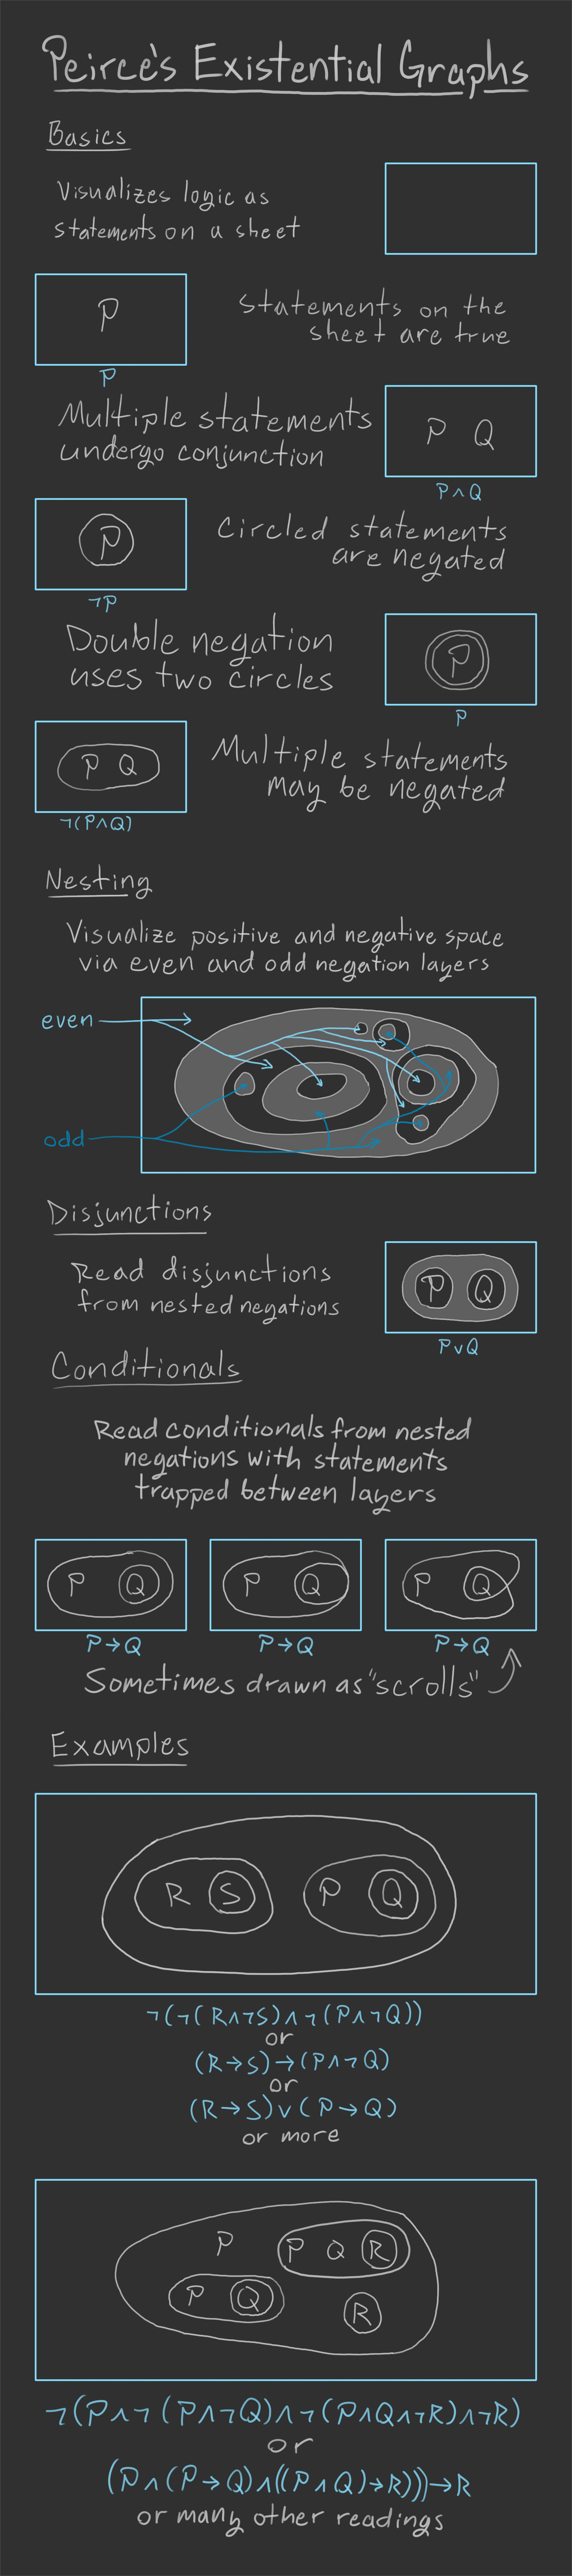 Peirce's Existential Graphs
Basics
Visualizes logic as
statements on a sheet
P
P
Statements on the
sheet are true
Multiple statements
undergo conjunction
P Q
P∧Q
P
¬P
Circled statements
are negated
Double negation
uses two circles
P
P
P Q
¬(P∧Q)
Multiple statements
may be negated
Nesting
Visualize positive and negative space
via even and odd negation layers
even
odd
Disjunctions
Read disjunctions
from nested negations
P Q
P∨Q
Conditionals
Read conditionals from nested
negations with statements
trapped between layers
P Q
P→Q
P Q
P→Q
P Q
P→Q
Sometimes drawn as "scrolls"
Examples
R S P Q
¬(¬(R∧¬S)∧¬(P∧¬Q))
or
(R→S)→(P∧¬Q)
or
(R→S)∨(P→Q)
or more
P P Q R
P Q R
¬(P∧¬(P∧¬Q)∧¬(P∧Q∧¬R)∧¬R)
or
(P∧(P→Q)∧((P∧Q)→R)))→R
or many other readings